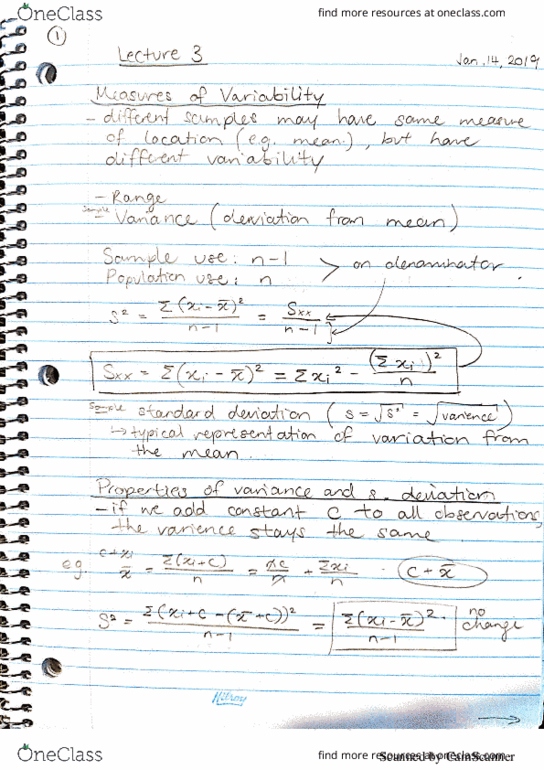 OneClass
find more resources at oneclass.com
1
Lecture 3
Jan. 14, 2019
Measures of Variability
- different samples may have same measure
of location (e.g. mean.), but have
different variability
- Range
sample
- Variance (deviation from mean)
Sample use: n-1
Population use: n
> on denominator
S² = Σ(xi - x̄)² / n-1 = Sxx / n-1
Sxx = Σ(xi - x̄)² = Σxi² - (Σxi)² / n
sample standard deviation (s = √s² = √varience)
↳ typical representation of variation from
the mean
Properties of variance and s. deviation
- if we add constant C to all observations,
the varience stays the same
eg. c+xi x̄ = Σ(xi+c) / n = nc / n + Σxi / n = C + x̄
S² = Σ(xi+c-(x̄+c))² / n-1 = Σ(xi-x̄)² / n-1 no change
Hilroy
→
OneClass
find more resources at oneclass.com
Scanned by CamScanner